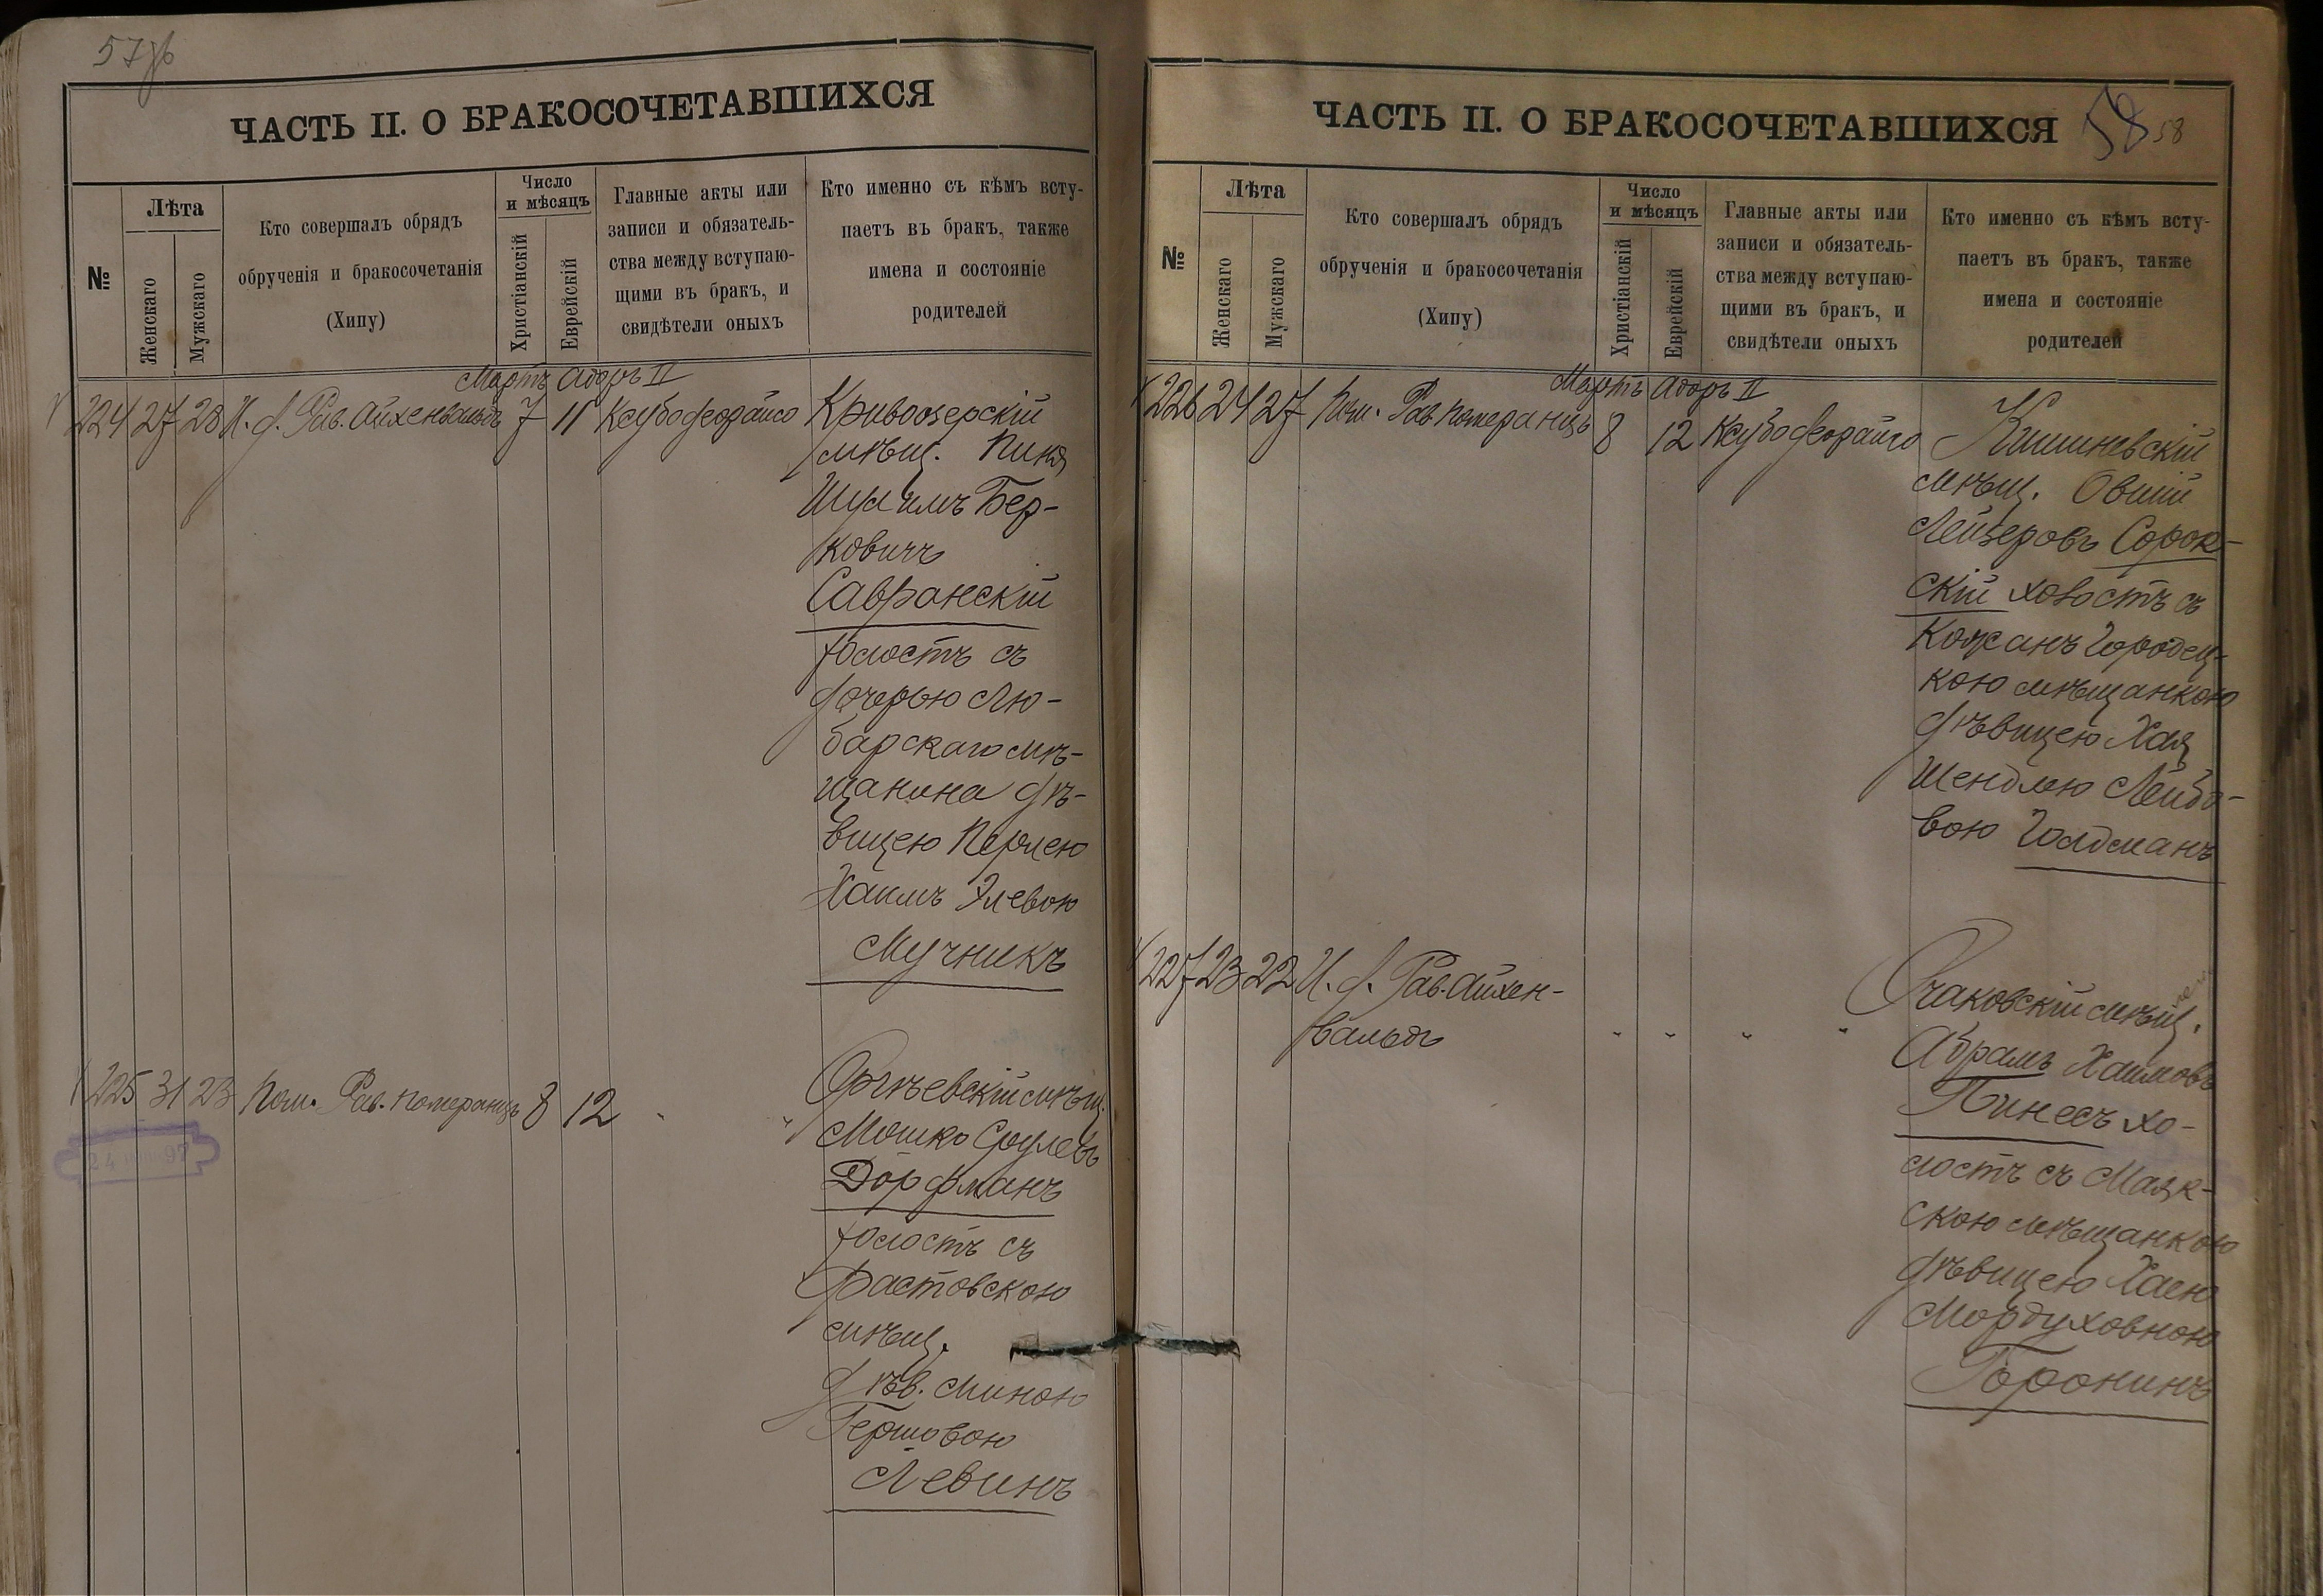 57об
ЧАСТЬ II. О БРАКОСОЧЕТАВШИХСЯ
№
Лѣта
Женскаго
Мужскаго
Кто совершалъ обрядъ
обрученія и бракосочетанія
(Хипу)
Число
и мѣсяцъ
Христіанскій
Еврейскій
Главные акты или
записи и обязатель-
ства между вступаю-
щими въ бракъ, и
свидѣтели оныхъ
Кто именно съ кѣмъ всту-
паетъ въ бракъ, также
имена и состояніе
родителей
Мартъ Адоръ II
224 27 28 И. д. Рав. Айхенвальдъ 7 11 Ксубо деорайсо
Кривоозерскій
мѣщ. Пиня
Шулимъ Бер-
ковичъ
Савранскій
холостъ съ
дочерью Лю-
барскаго мѣ-
щанина дѣ-
вицею Перлею
Хаимъ Элевою
Мучникъ
225 31 23 Пом. Рав. Померанцъ 8 12 " "
Оргѣевскій мѣщ.
Мошко Срулевъ
Дорфманъ
холостъ съ
Фастовскою
мѣщ.
дѣв. Миною
Гершовою
Левинъ
24 97
ЧАСТЬ II. О БРАКОСОЧЕТАВШИХСЯ
58 58
№
Лѣта
Женскаго
Мужскаго
Кто совершалъ обрядъ
обрученія и бракосочетанія
(Хипу)
Число
и мѣсяцъ
Христіанскій
Еврейскій
Главные акты или
записи и обязатель-
ства между вступаю-
щими въ бракъ, и
свидѣтели оныхъ
Кто именно съ кѣмъ всту-
паетъ въ бракъ, также
имена и состояніе
родителей
Мартъ Адоръ II
226 24 27 Пом. Рав. Померанцъ 8 12 Ксубо деорайсо
Кишиневскій
мѣщ. Овшій
Лейзеровъ Сорок-
скій холостъ съ
Кожанъ Городец-
кою мѣщанкою
дѣвицею Хая
Шендлею Лейбо-
вою Голдманъ
227 23 22 И. д. Рав. Айхен-
вальдъ " " " "
Очаковскій мѣщ.
Абрамъ Хаимовъ
Пинесъ хо-
лостъ съ Маяк-
скою мѣщанкою
дѣвицею Хаею
Мордуховною
Боронинъ